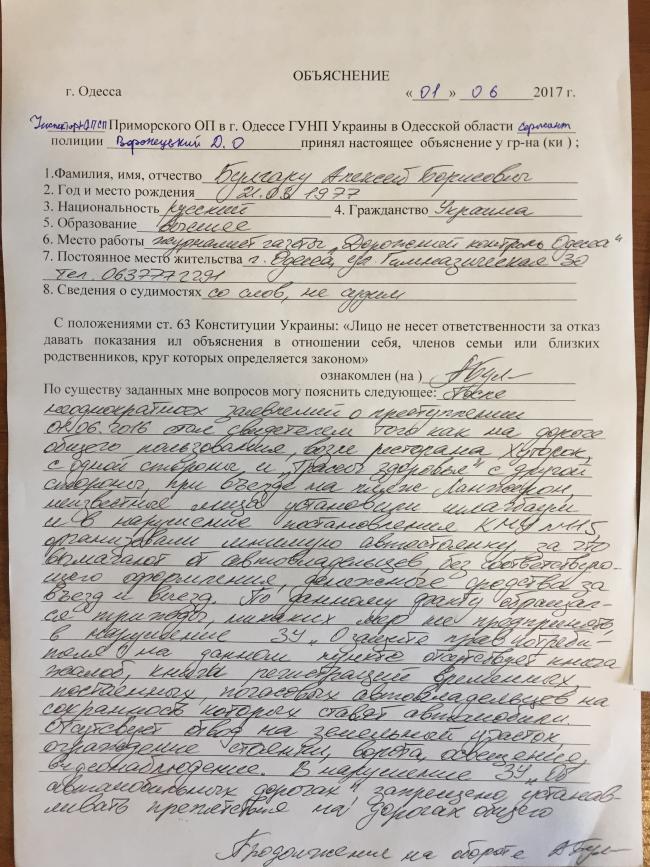 ОБЪЯСНЕНИЕ
г. Одесса «01» 06 2017 г.
Приморского ОП в г. Одессе ГУНП Украины в Одесской области сержант
полиции Воронецкий Д.О принял настоящее объяснение у гр-на (ки ) ;
1.Фамилия, имя, отчество Булгару Алексей Борисович
2. Год и место рождения 21.03 1977
3. Национальность русский 4. Гражданство Украина
5. Образование высшее
6. Место работы журналист газеты „Дорожный контроль Одесса“
7. Постоянное место жительства г. Одесса, ул Гимназическая 30
тел. 0637772291
8. Сведения о судимостях со слов, не судим
С положениями ст. 63 Конституции Украины: «Лицо не несет ответственности за отказ
давать показания ил объяснения в отношении себя, членов семьи или близких
родственников, круг которых определяется законом»
ознакомлен (на )
По существу заданных мне вопросов могу пояснить следующее: После
неоднократных заявлений о преступлении
01.06.2016 стал свидетелем того как на дороге
общего пользования, возле ресторана Хуторок,
с одной стороны и „Трассой здоровья“ с другой
стороны, при въезде на пляж Ланжерон,
неизвестные лица установили шлагбаум
и в нарушение постановления КМУ №115
организовали мнимую автостоянку, за что
вымагают от автовладельцев, без соответствую-
щего оформления, денежные средства за
въезд и выезд. По данному факту обращал-
ся трижды, никаких мер не предпринято,
в нарушение ЗУ „О защите прав потреби-
теля“ на данном пункте отсутствует книга
жалоб, книги регистраций временных,
постоянных, почасовых автовладельцев на
сохранность которых ставят автомобили.
Отсутсвует отвод на земельный участок,
ограждение стоянки, ворота, освещение,
видеонаблюдение. В нарушение ЗУ „Об
автомобильных дорогах“ запрещено устанав-
ливать препятствия на дорогах общего
Продолжение на обороте